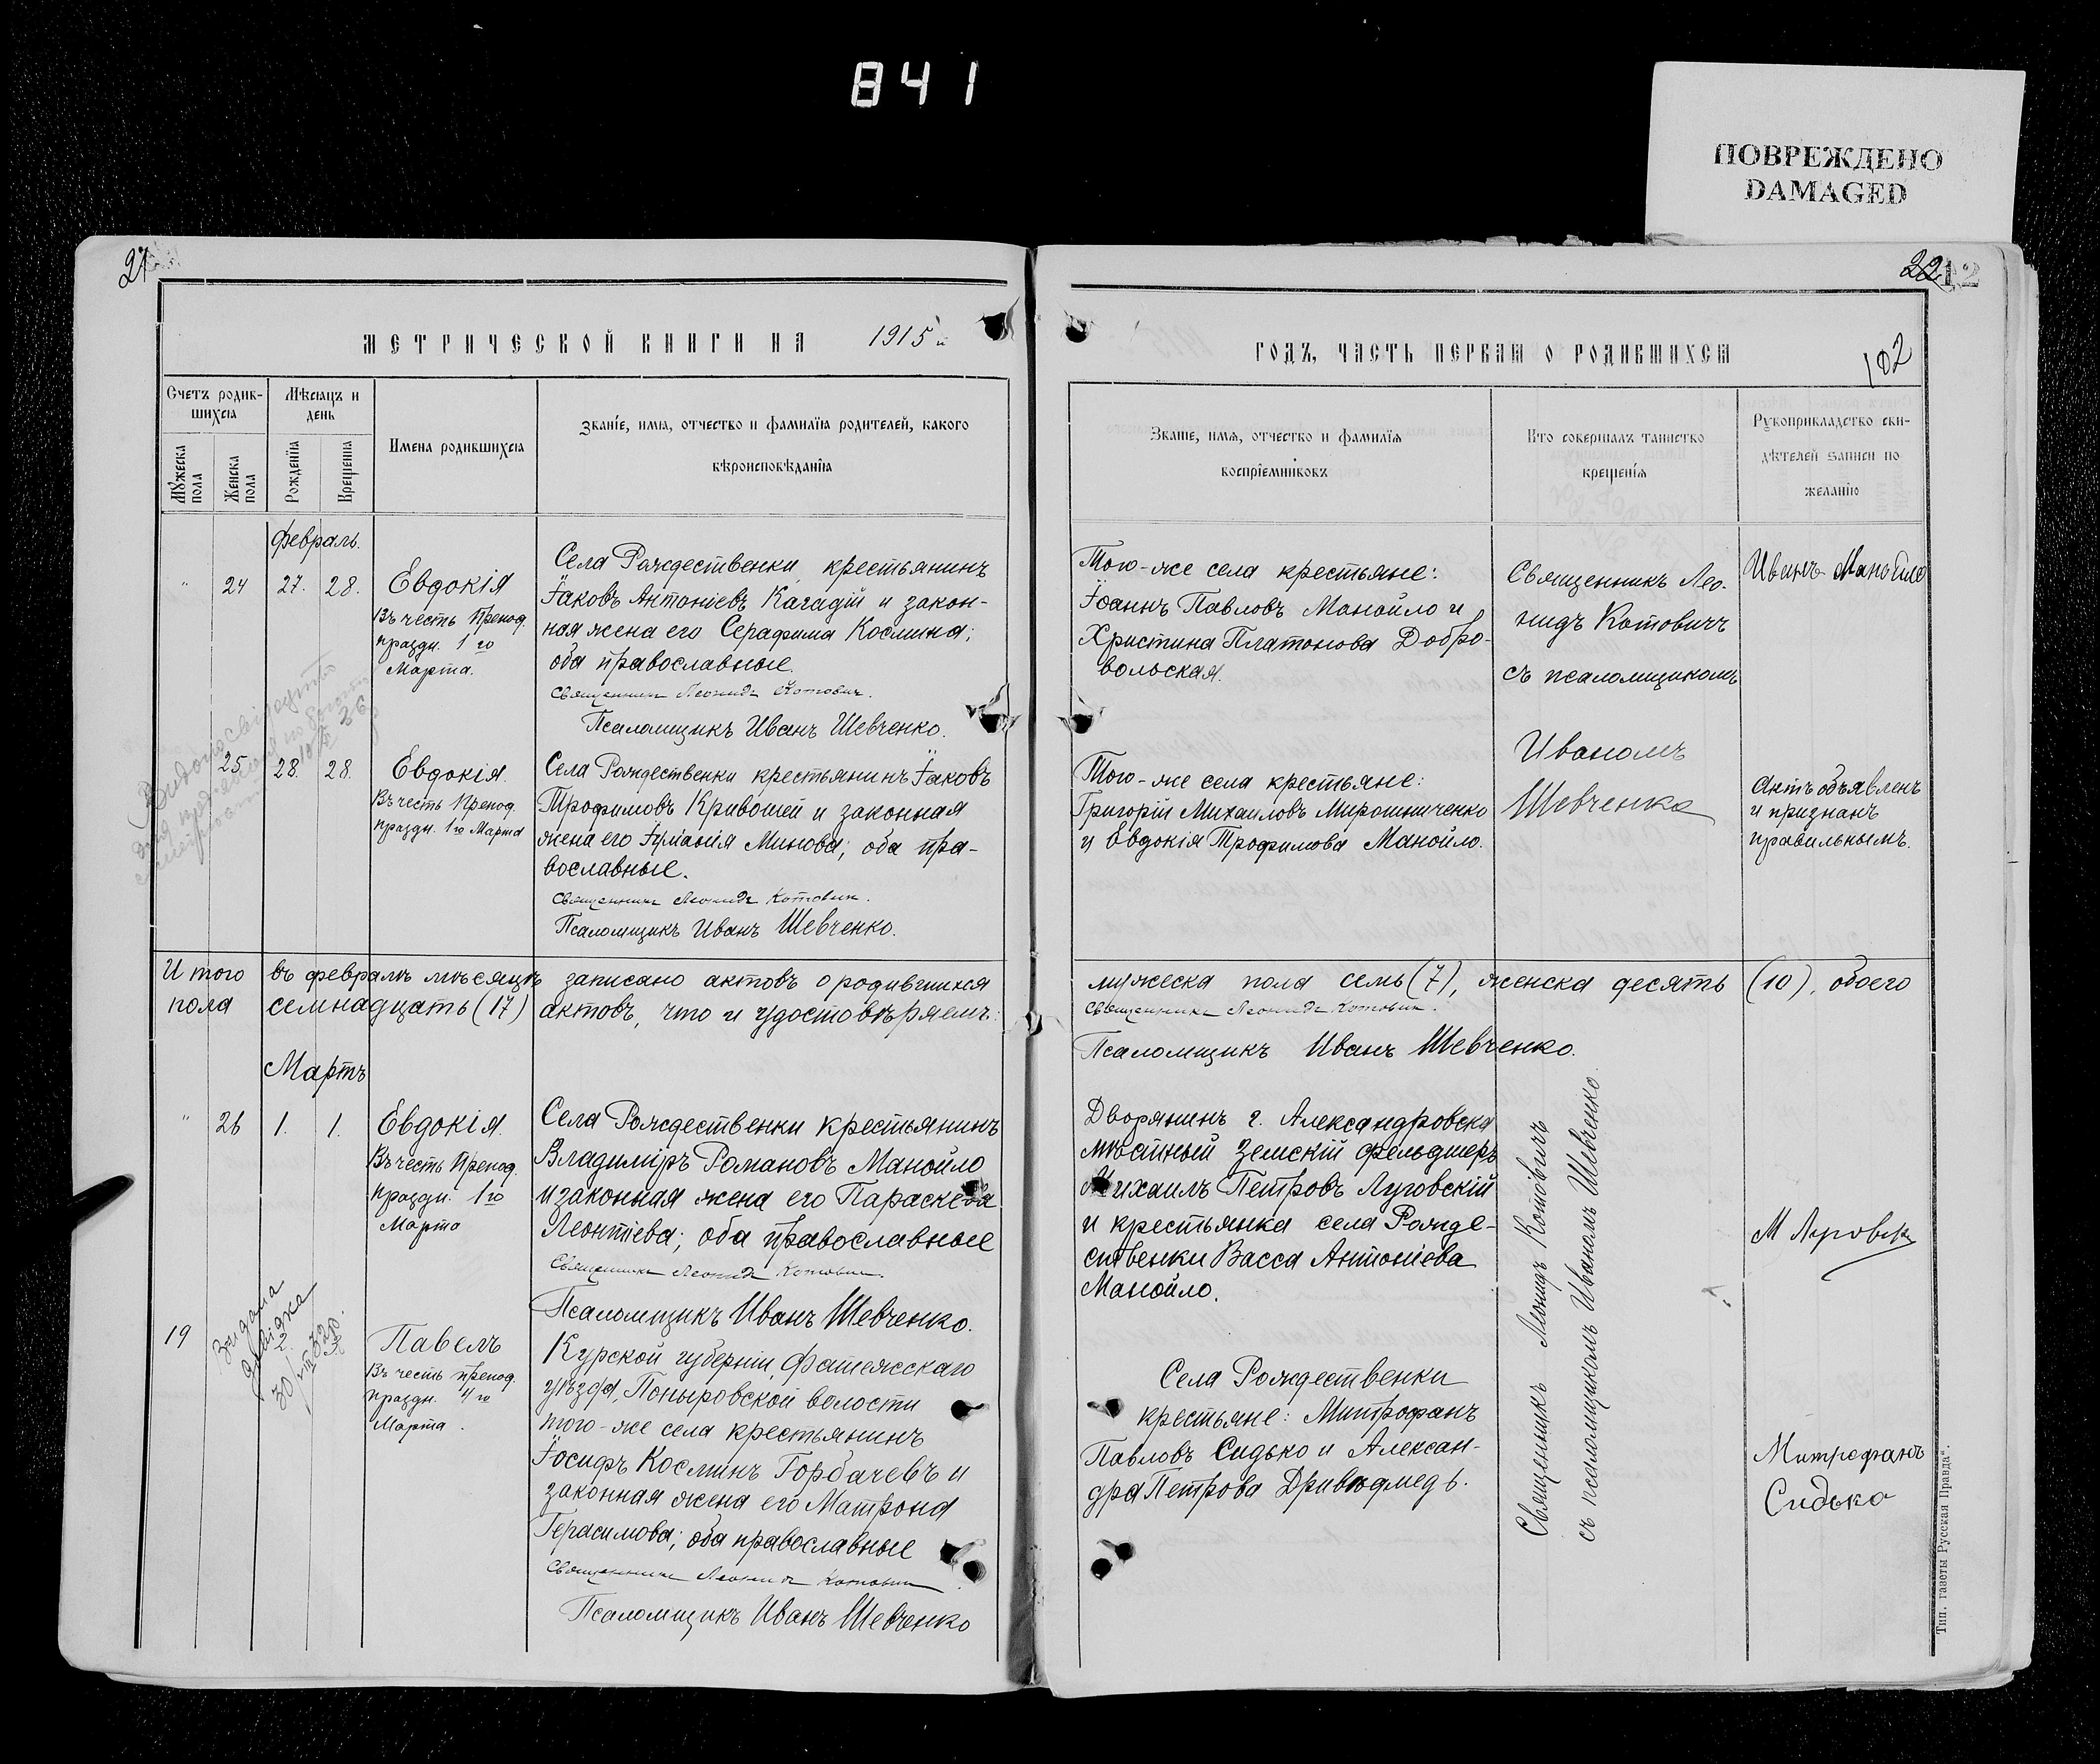 841
ПОВРЕЖДЕНО
DAMAGED
21
МЕТРИЧЕСКОЙ КНИГИ НА 1915й
Счетъ родившихся
Мѣсяцъ и день
Мужеска пола
Женска пола
Рожденїя
Крещенїя
Имена родившихся
Званїе, имя, отчество и фамилїя родителей, какого
вѣроисповѣданїя
Февраль.
" 24 27. 28.
Евдокія
Въ честь препод.
праздн. 1го
Марта.
Села Рождественки крестьянинъ
Іаковъ Антоніевъ Кагадій и закон-
ная жена его Серафима Космина;
оба православные.
Священникъ Леонидъ Котовичъ.
Псаломщикъ Иванъ Шевченко.
25 28. 28.
Евдокія.
Въ честь препод.
праздн. 1го Марта
Села Рождественки крестьянинъ Іаковъ
Трофимовъ Кривошей и законная
жена его Іуліанія Минова; оба пра-
вославные.
Священникъ Леонидъ Котовичъ.
Псаломщикъ Иванъ Шевченко.
Итого въ февралѣ мѣсяцѣ записано актовъ о родившихся
пола семнадцать (17) актовъ, что и удостовѣряемъ:
Мартъ
" 26 1. 1.
Евдокія.
Въ честь препод.
праздн. 1го
Марта
Села Рождественки крестьянинъ
Владиміръ Романовъ Манойло
и законная жена его Параскева
Леонтіева; оба православные
Священникъ Леонидъ Котовичъ.
Псаломщикъ Иванъ Шевченко.
19
Видана
довідка
30/VIII 32р.
Павелъ
Въ честь препод.
праздн. 4го
Марта.
Курской губерніи, Фатежскаго
уѣзда, Поныровской волости
того-же села крестьянинъ
Іосифъ Косминъ Горбачевъ и
законная жена его Матрона
Герасимова; оба православные
Священникъ Леонидъ Котовичъ
Псаломщикъ Иванъ Шевченко
22
12
102
ГОДЪ, ЧАСТЬ ПЕРВАЯ О РОДИВШИХСЯ
Званїе, имя, отчество и фамилїя
воспрїемниковъ
Кто совершалъ таинство
крещенїя
Рукоприкладство сви-
дѣтелей записи по
желанїю
Того-же села крестьяне:
Іоаннъ Павловъ Манойло и
Христина Платонова Добро-
вольская.
Священникъ Лео-
нидъ Котовичъ
съ псаломщикомъ
Иваномъ
Шевченко
Иванъ Манойло
Того-же села крестьяне:
Григорій Михаиловъ Мирошниченко
и Евдокія Трофимова Манойло.
Актъ объявленъ
и признанъ
правильнымъ.
мужеска пола семь (7), женска десять (10), обоего
Священникъ Леонидъ Котовичъ.
Псаломщикъ Иванъ Шевченко.
Дворянинъ г. Александровска
мѣстный земскій фельдшеръ
Михаилъ Петровъ Луговскій
и крестьянка села Рожде-
ственки Васса Антоніева
Манойло.
Священникъ Леонидъ Котовичъ
съ псаломщикомъ Иваномъ Шевченко.
М Луговск
Села Рождественки
крестьяне: Митрофанъ
Павловъ Сидько и Алексан-
дра Петрова Дривѣдмедь.
Митрофанъ
Сидько
Тип. газеты Русская Правда".